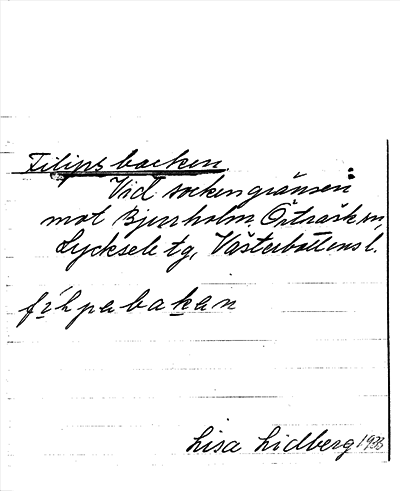 Filipsbacken
Vid sockengränsen
mot Bjurholm. Örträsk sn,
Lycksele tg, Västerbottens l.
filipabakan
Lisa Lidberg 1933